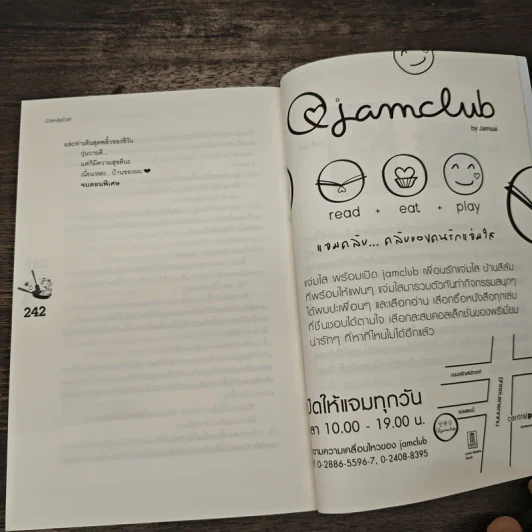 CandyCat
และท่าเดินสุดพลิ้วของชีวัน
วุ่นวายดี...
แต่ก็มีความสุขดีนะ
เนี่ยแหละ...บ้านของผม ❤
จบตอนพิเศษ
242
@jamclub
by Jamsai
read + eat + play
แจมคลับ... คลับของคนรักแจ่มใส
แจ่มใส พร้อมเปิด jamclub เพื่อนรักแจ่มใส บ้านสีส้ม
ที่พร้อมให้แฟนๆ แจ่มใสมารวมตัวกันทำกิจกรรมสนุกๆ
ได้พบปะเพื่อนๆ และเลือกอ่าน เลือกซื้อหนังสือทุกเล่ม
ที่ชื่นชอบได้ตามใจ เลือกสะสมคอลเล็กชั่นของพรีเมี่ยม
น่ารักๆ ที่หาที่ไหนไม่ได้อีกแล้ว
ปิดให้แจมทุกวัน
ลา 10.00 - 19.00 น.
ตามความเคลื่อนไหวของ jamclub
0-2886-5596-7, 0-2408-8395
central